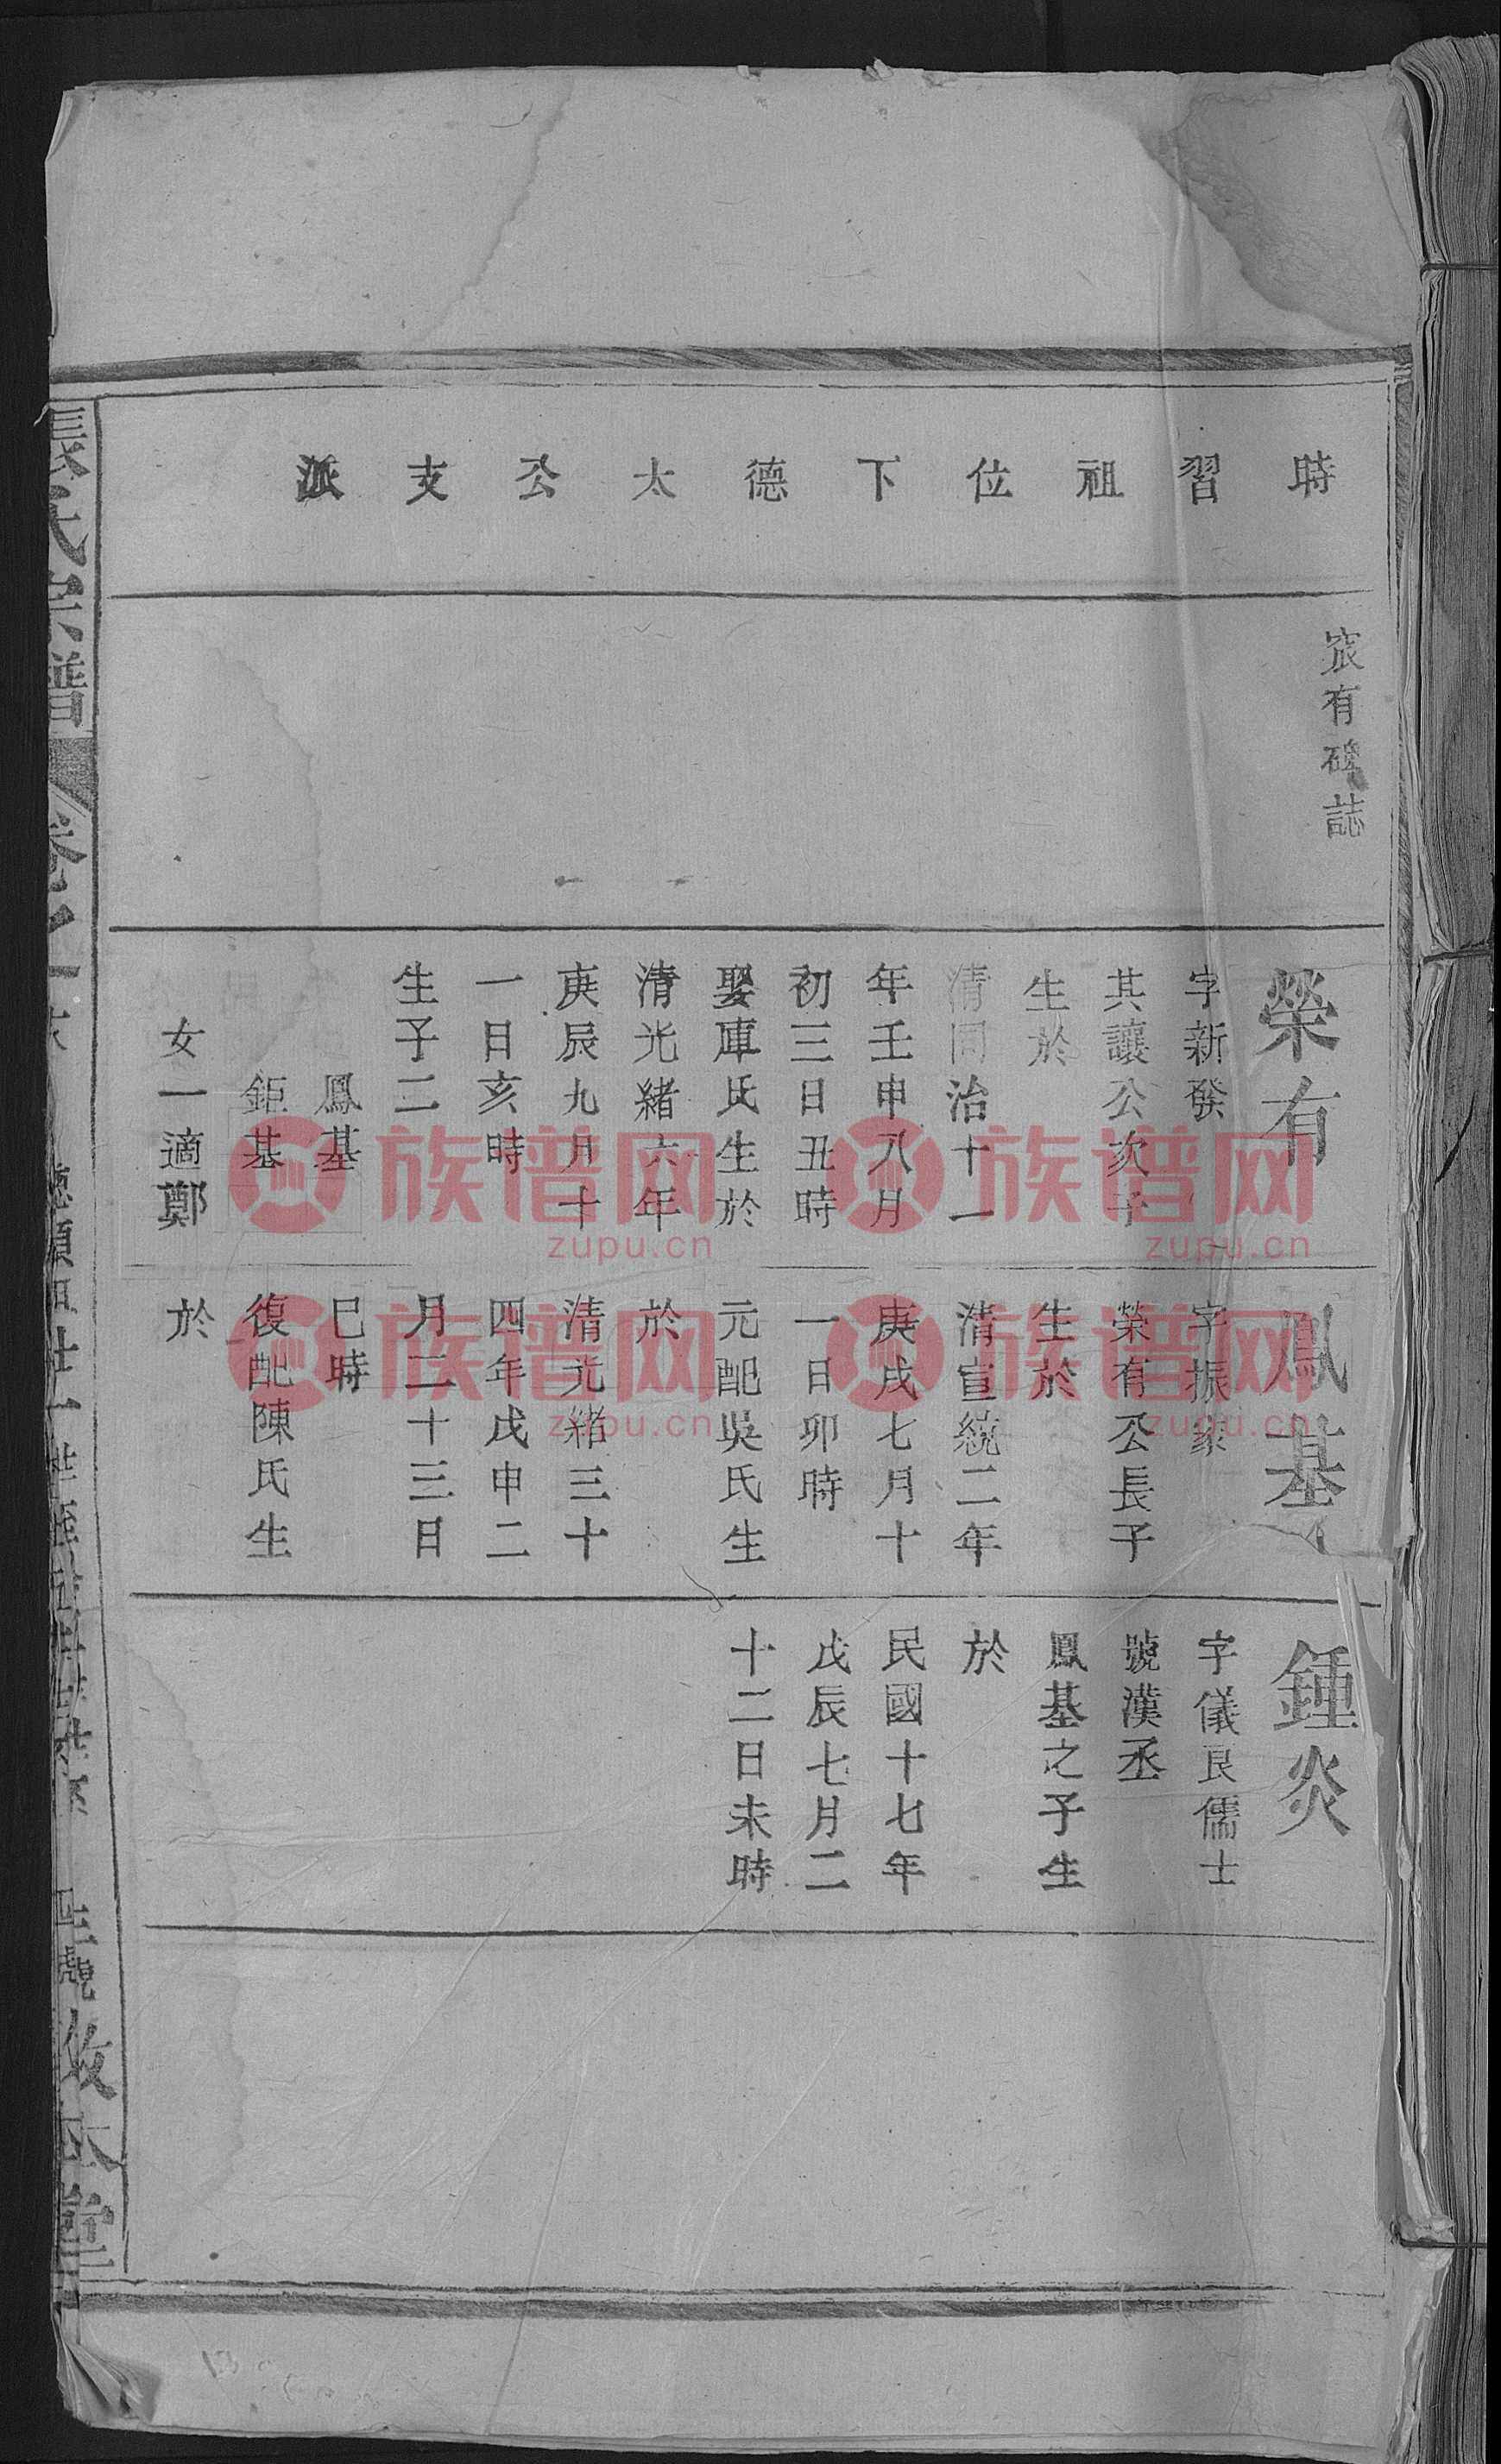 時習祖位下德太公支派
有碑誌
榮有
字新發
其讓公次子
生於
清同治十一
年壬申八月
初三日丑時
娶庫氏生於
清光緒六年
庚辰九月十
一日亥時
生子二
鳳基
鉅基
女一適鄭
鳳基
字振家
榮有公長子
生於
清宣統二年
庚戌七月十
一日卯時
元配吳氏生
於
清光緒三十
四年戊申二
月二十三日
巳時
復配陳氏生
於
鍾炎
字儀良儒士
號漢丞
鳳基之子生
於
民國十七年
戊辰七月二
十二日未時
張氏宗譜
卷之一
族谱网
zupu.cn
族谱网
zupu.cn
族谱网
zupu.cn
族谱网
zupu.cn